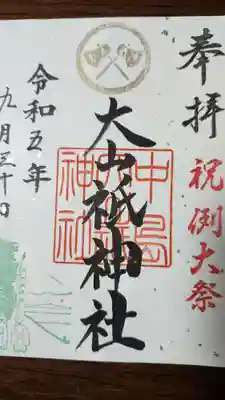 奉拝
祝例大祭
大山祇神社
中島神社
令和五年
九月三十日